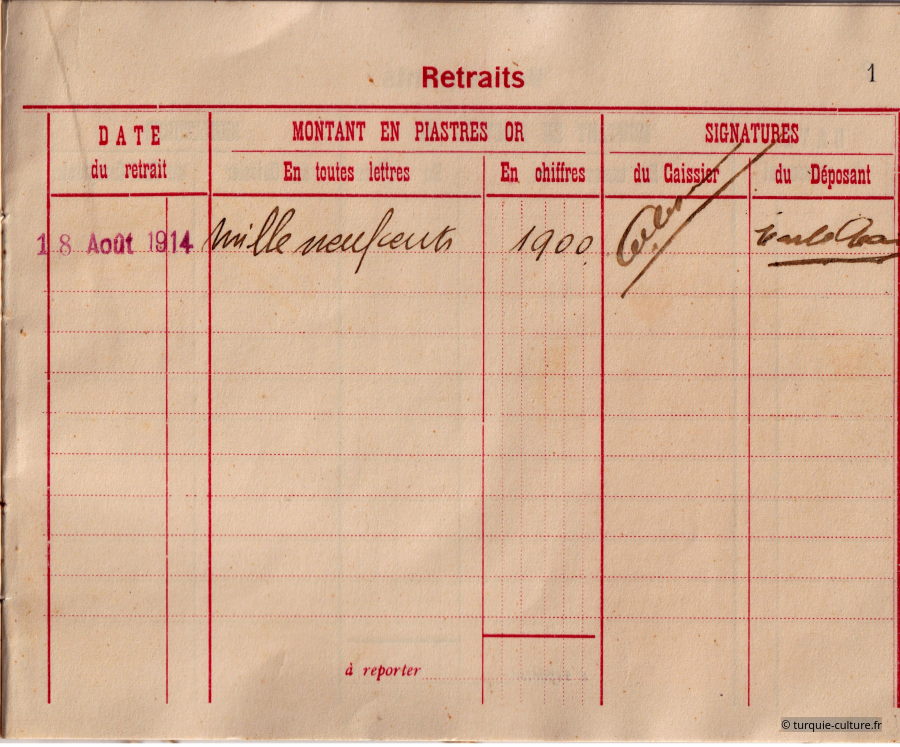 Retraits
1
DATE
du retrait
MONTANT EN PIASTRES OR
En toutes lettres
En chiffres
SIGNATURES
du Caissier
du Déposant
18 Août 1914 mille neuf cents 1900
à reporter
© turquie-culture.fr